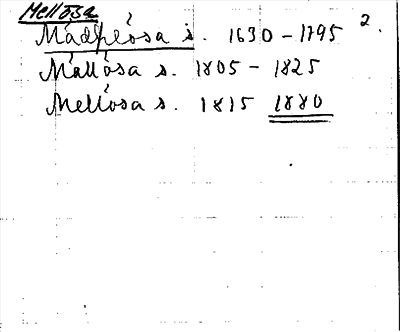 Mellösa
2.
Mádhéósa s. 1630 – 1795
Mállósa s. 1805 – 1825
Mellósa s. 1815 1880